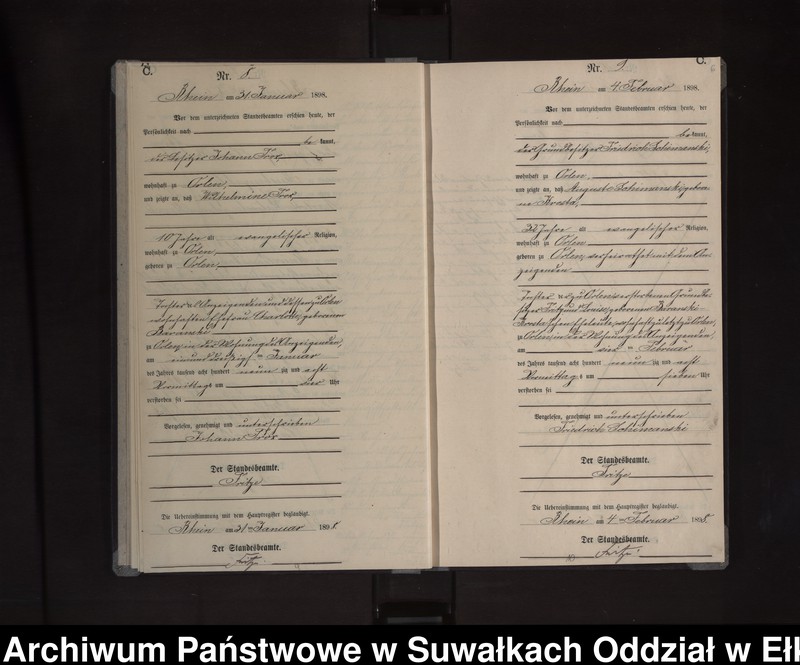 C.
Nr. 8.
Rhein am 31 Januar 1898.
Vor dem unterzeichneten Standesbeamten erschien heute, der
Persönlichkeit nach
be kannt,
der Besitzer Johann
wohnhaft zu Orlen,
und zeigte an, daß Wilhelmine
10 Jahre alt evangelischer Religion,
wohnhaft zu Orlen
geboren zu Orlen,
Tochter des Anzeigenden und dessen zu Orlen
wohnhaften Ehefrau Charlotte, geborenen
Baranski
zu Orlen, in der Wohnung des Anzeigenden,
am einunddreißigsten Januar
des Jahres tausend acht hundert neun zig und acht
Vormittags um vier Uhr
verstorben sei
Vorgelesen, genehmigt und unterschrieben
Johann
Der Standesbeamte.
Fritze
Die Uebereinstimmung mit dem Hauptregister beglaubigt.
Rhein am 31 ten Januar 1898.
Der Standesbeamte.
Fritze.
C.
Nr. 9.
Rhein am 4. Februar 1898.
Vor dem unterzeichneten Standesbeamten erschien heute, der
Persönlichkeit nach
be kannt,
der Grundbesitzer Friedrich
wohnhaft zu Orlen
und zeigte an, daß Auguste gebore-
ne
Jahre alt evangelischer Religion,
wohnhaft zu Orlen
geboren zu Orlen, verheirathet mit dem An-
zeigenden
Tochter der zu Orlen verstorbenen Grundbe-
sitzer und Louise, geborenen Baranski-
Eheleute, wohnhaft zuletzt zu Orlen,
zu Orlen, in der Wohnung des Anzeigenden,
am vierten Februar
des Jahres tausend acht hundert neun zig und acht
Vormittags um sieben Uhr
verstorben sei
Vorgelesen, genehmigt und unterschrieben
Friedrich
Der Standesbeamte.
Fritze
Die Uebereinstimmung mit dem Hauptregister beglaubigt.
Rhein am 4 ten Februar 1898.
Der Standesbeamte.
Fritze.
Archiwum Państwowe w Suwałkach Oddział w Ełk